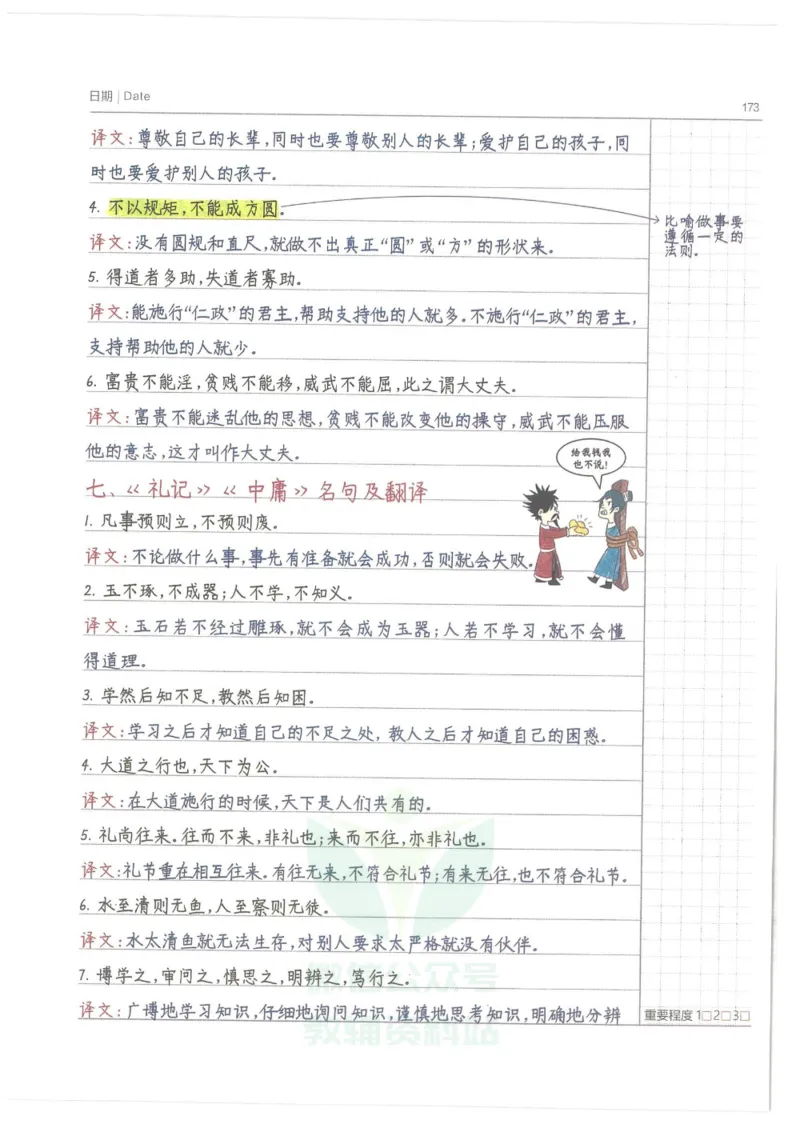 日期 | Date
173
译文:尊敬自己的长辈,同时也要尊敬别人的长辈;爱护自己的孩子,同
时也要爱护别人的孩子.
4. 不以规矩,不能成方圆.
比喻做事要
遵循一定的
法则.
译文:没有圆规和直尺,就做不出真正“圆”或“方”的形状来.
5. 得道者多助,失道者寡助.
译文:能施行“仁政”的君主,帮助支持他的人就多.不施行“仁政”的君主,
支持帮助他的人就少.
6. 富贵不能淫,贫贱不能移,威武不能屈,此之谓大丈夫.
译文:富贵不能迷乱他的思想,贫贱不能改变他的操守,威武不能压服
他的意志,这才叫作大丈夫.
给我钱我
也不说!
七、《礼记》《中庸》名句及翻译
1. 凡事预则立,不预则废.
译文:不论做什么事,事先有准备就会成功,否则就会失败.
2. 玉不琢,不成器;人不学,不知义.
译文:玉石若不经过雕琢,就不会成为玉器;人若不学习,就不会懂
得道理.
3. 学然后知不足,教然后知困.
译文:学习之后才知道自己的不足之处,教人之后才知道自己的困惑.
4. 大道之行也,天下为公.
译文:在大道施行的时候,天下是人们共有的.
5. 礼尚往来.往而不来,非礼也;来而不往,亦非礼也.
译文:礼节重在相互往来.有往无来,不符合礼节;有来无往,也不符合礼节.
6. 水至清则无鱼,人至察则无徒.
译文:水太清鱼就无法生存,对别人要求太严格就没有伙伴.
7. 博学之,审问之,慎思之,明辨之,笃行之.
微信公众号
译文:广博地学习知识,仔细地询问知识,谨慎地思考知识,明确地分辨
教辅资料站
重要程度 1□2□3□